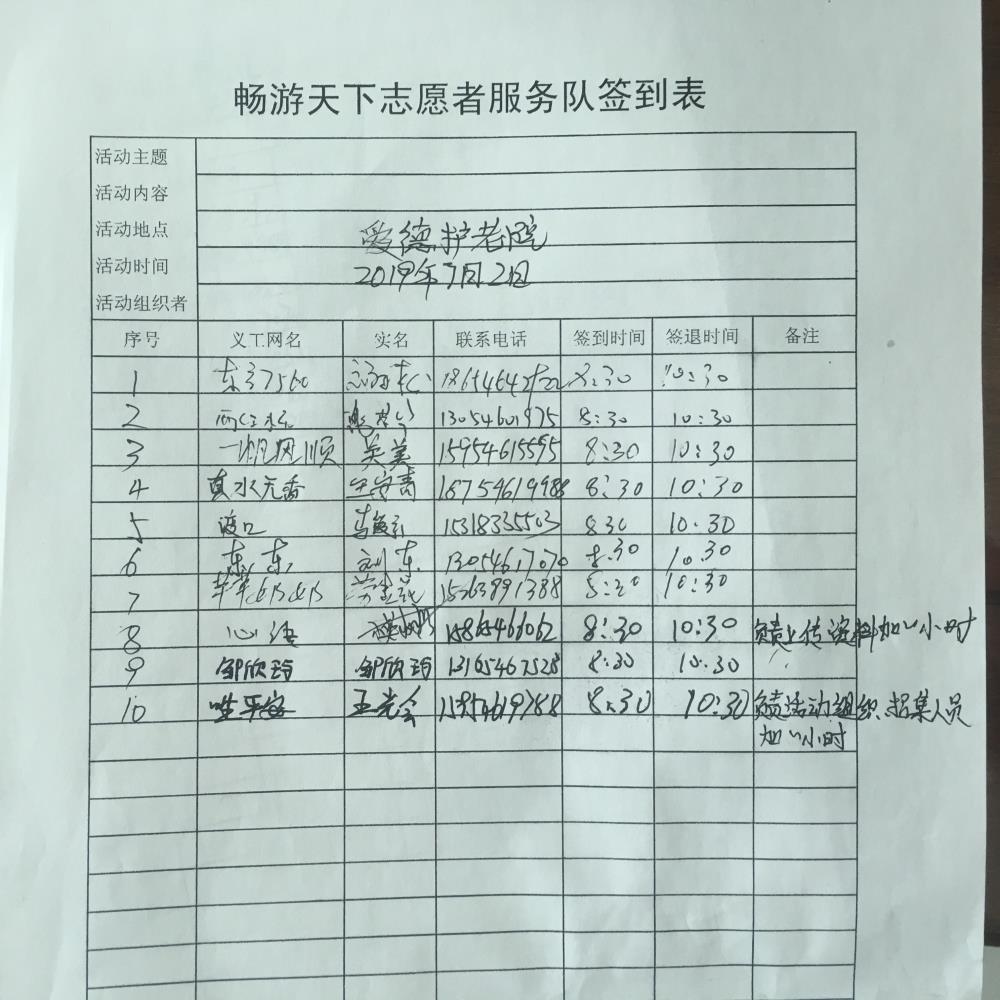 畅游天下志愿者服务队签到表
活动主题
活动内容
活动地点 爱德护老院
活动时间 2019年7月2日
活动组织者
序号 义工网名 实名 联系电话 签到时间 签退时间 备注
1 8:30 10:30
2 13054601975 8:30 10:30
3 一帆风顺 吴美 15954615595 8:30 10:30
4 真水无香 18754619988 8:30 10:30
5 渡口 15318335503 830 10:30
6 东东 刘东 13054617070 8:30 10:30
7 15263891388 10:30
8 心语 8:30 10:30 负责上传资料加1小时
9 邹欣玲 邹欣玲 13165467528 8:30 10:30
10 王光会 8:30 10:30 负责活动组织.招集人员
加1小时